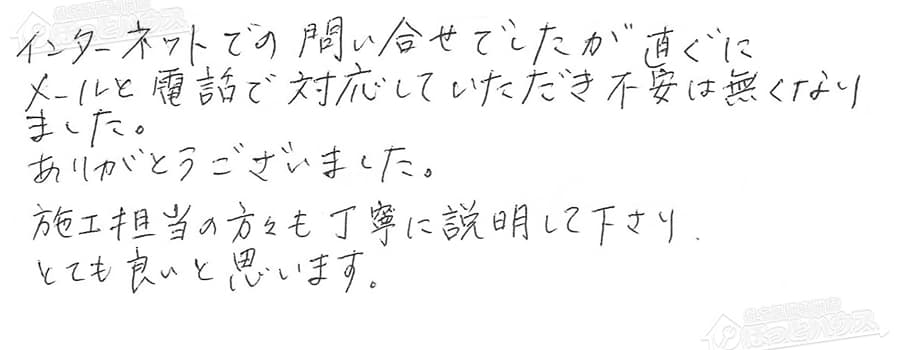 インターネットでの問い合せでしたが直ぐに
メールと電話で対応していただき不安は無くなり
ました。
ありがとうございました。
施工担当の方々も丁寧に説明して下さり、
とても良いと思います。